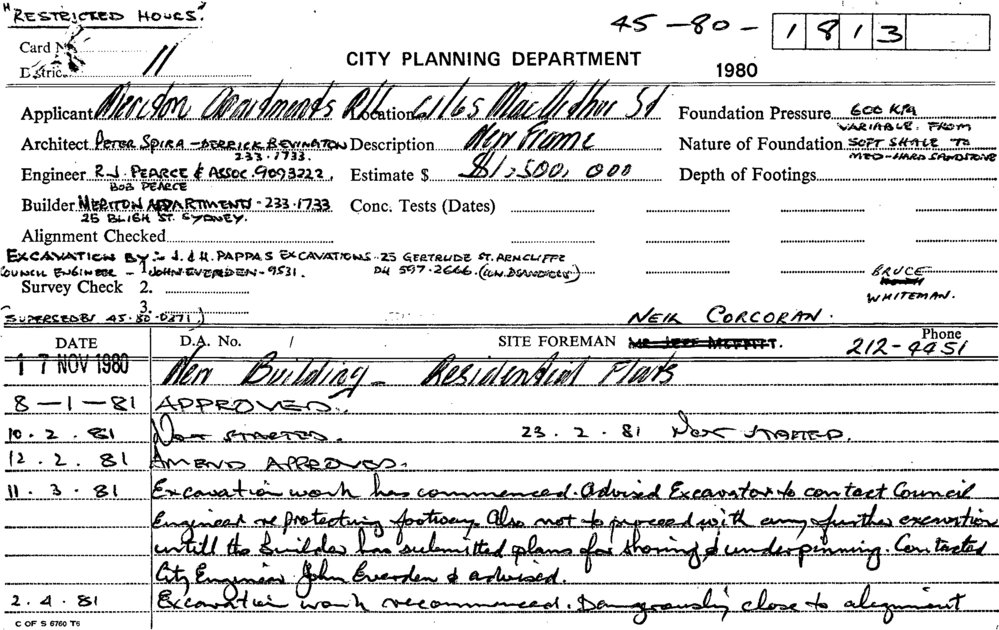 "RESTRICTED HOURS."
45-80- 1813
Card No
District 11
CITY PLANNING DEPARTMENT
1980
Applicant Meriton Apartments P/L Location 61/65 MacArthur St Foundation Pressure 600 KPA
VARIABLE FROM
Architect PETER SPIRA - DERRICK BEVINGTON Description New Frame Nature of Foundation SOFT SHALE TO
233.1733. MED-HARD SANDSTONE
Engineer R.J. PEARCE & ASSOC. 9093222. Estimate $ $1,500,000 Depth of Footings
BOB PEARCE
Builder MERITON APARTMENTS - 233.1733 Conc. Tests (Dates)
25 BLIGH ST. SYDNEY.
Alignment Checked
EXCAVATION BY:- J. & H. PAPPAS EXCAVATIONS 23 GERTRUDE ST. ARNCLIFFE
COUNCIL ENGINEER - 1. JOHN EVERDEN - 9531. PH 597-2666. BRUCE
Survey Check 2. WHITEMAN.
3.
SUPERSEDES 45-80-0371) NEIL CORCORAN.
DATE D.A. No. / SITE FOREMAN MR JEFF MOFFITT. Phone
212-4451
17 NOV 1980 New Building - Residential Flats
8-1-81 APPROVED.
10.2.81 NOT STARTED. 23.2.81 NOT STARTED.
12.2.81 AMEND APPROVED.
11.3.81 Excavation work has commenced. Advised Excavator to contact Council
Engineer re protecting footway. Also not to proceed with any further excavation
untill the builder has submitted plans for shoring & underpinning. Contacted
City Engineer John Everden & advised.
2.4.81 Excavation work recommenced. Dangerously close to alignment
C OF S 6760 T6